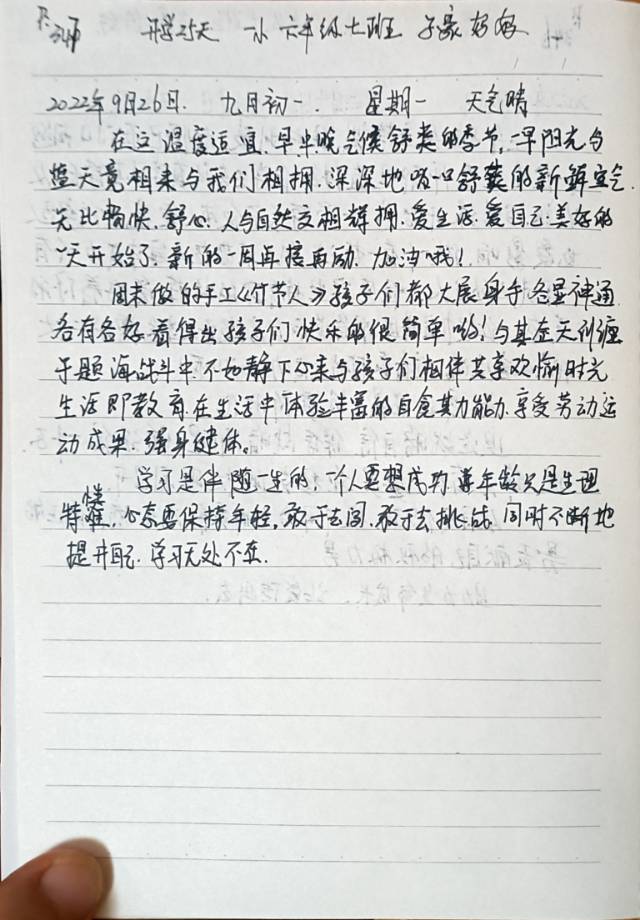 P.347
开学25天 一小 六年级七班 子豪妈妈
2022年9月26日. 九月初一. 星期一 天气晴
在这温度适宜.早中晚气候舒爽的季节,一早阳光与
蓝天竟相来与我们相拥.深深地吸一口舒爽的新鲜空气.
无比畅快.舒心.人与自然交相辉拥.爱生活.爱自己.美好的
一天开始了.新的一周再接再励.加油哦!
周末做的手工《竹节人》孩子们都大展身手各显神通
各有各好.看得出孩子们快乐的很简单哟!与其在天到缠
于题海战斗中.不如静下心来与孩子们相伴共享欢愉时光
生活即教育.在生活中体验丰富的自食其力能力.享受劳动运
动成果.强身健体。
学习是伴随一生的,一个人要想成功 年龄只是生理
特性,心态要保持年轻,敢于去闯.敢于去挑战 同时不断地
提升自己.学习无处不在.